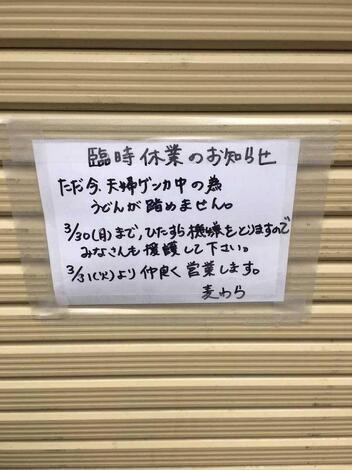 臨時休業のお知らせ
ただ今、夫婦ゲンカ中の為
うどんが踏めません。
3/30(月)まで、ひたすら機嫌をとりますので
みなさんも擁護して下さい。
3/31(火)より仲良く営業します。
麦わら